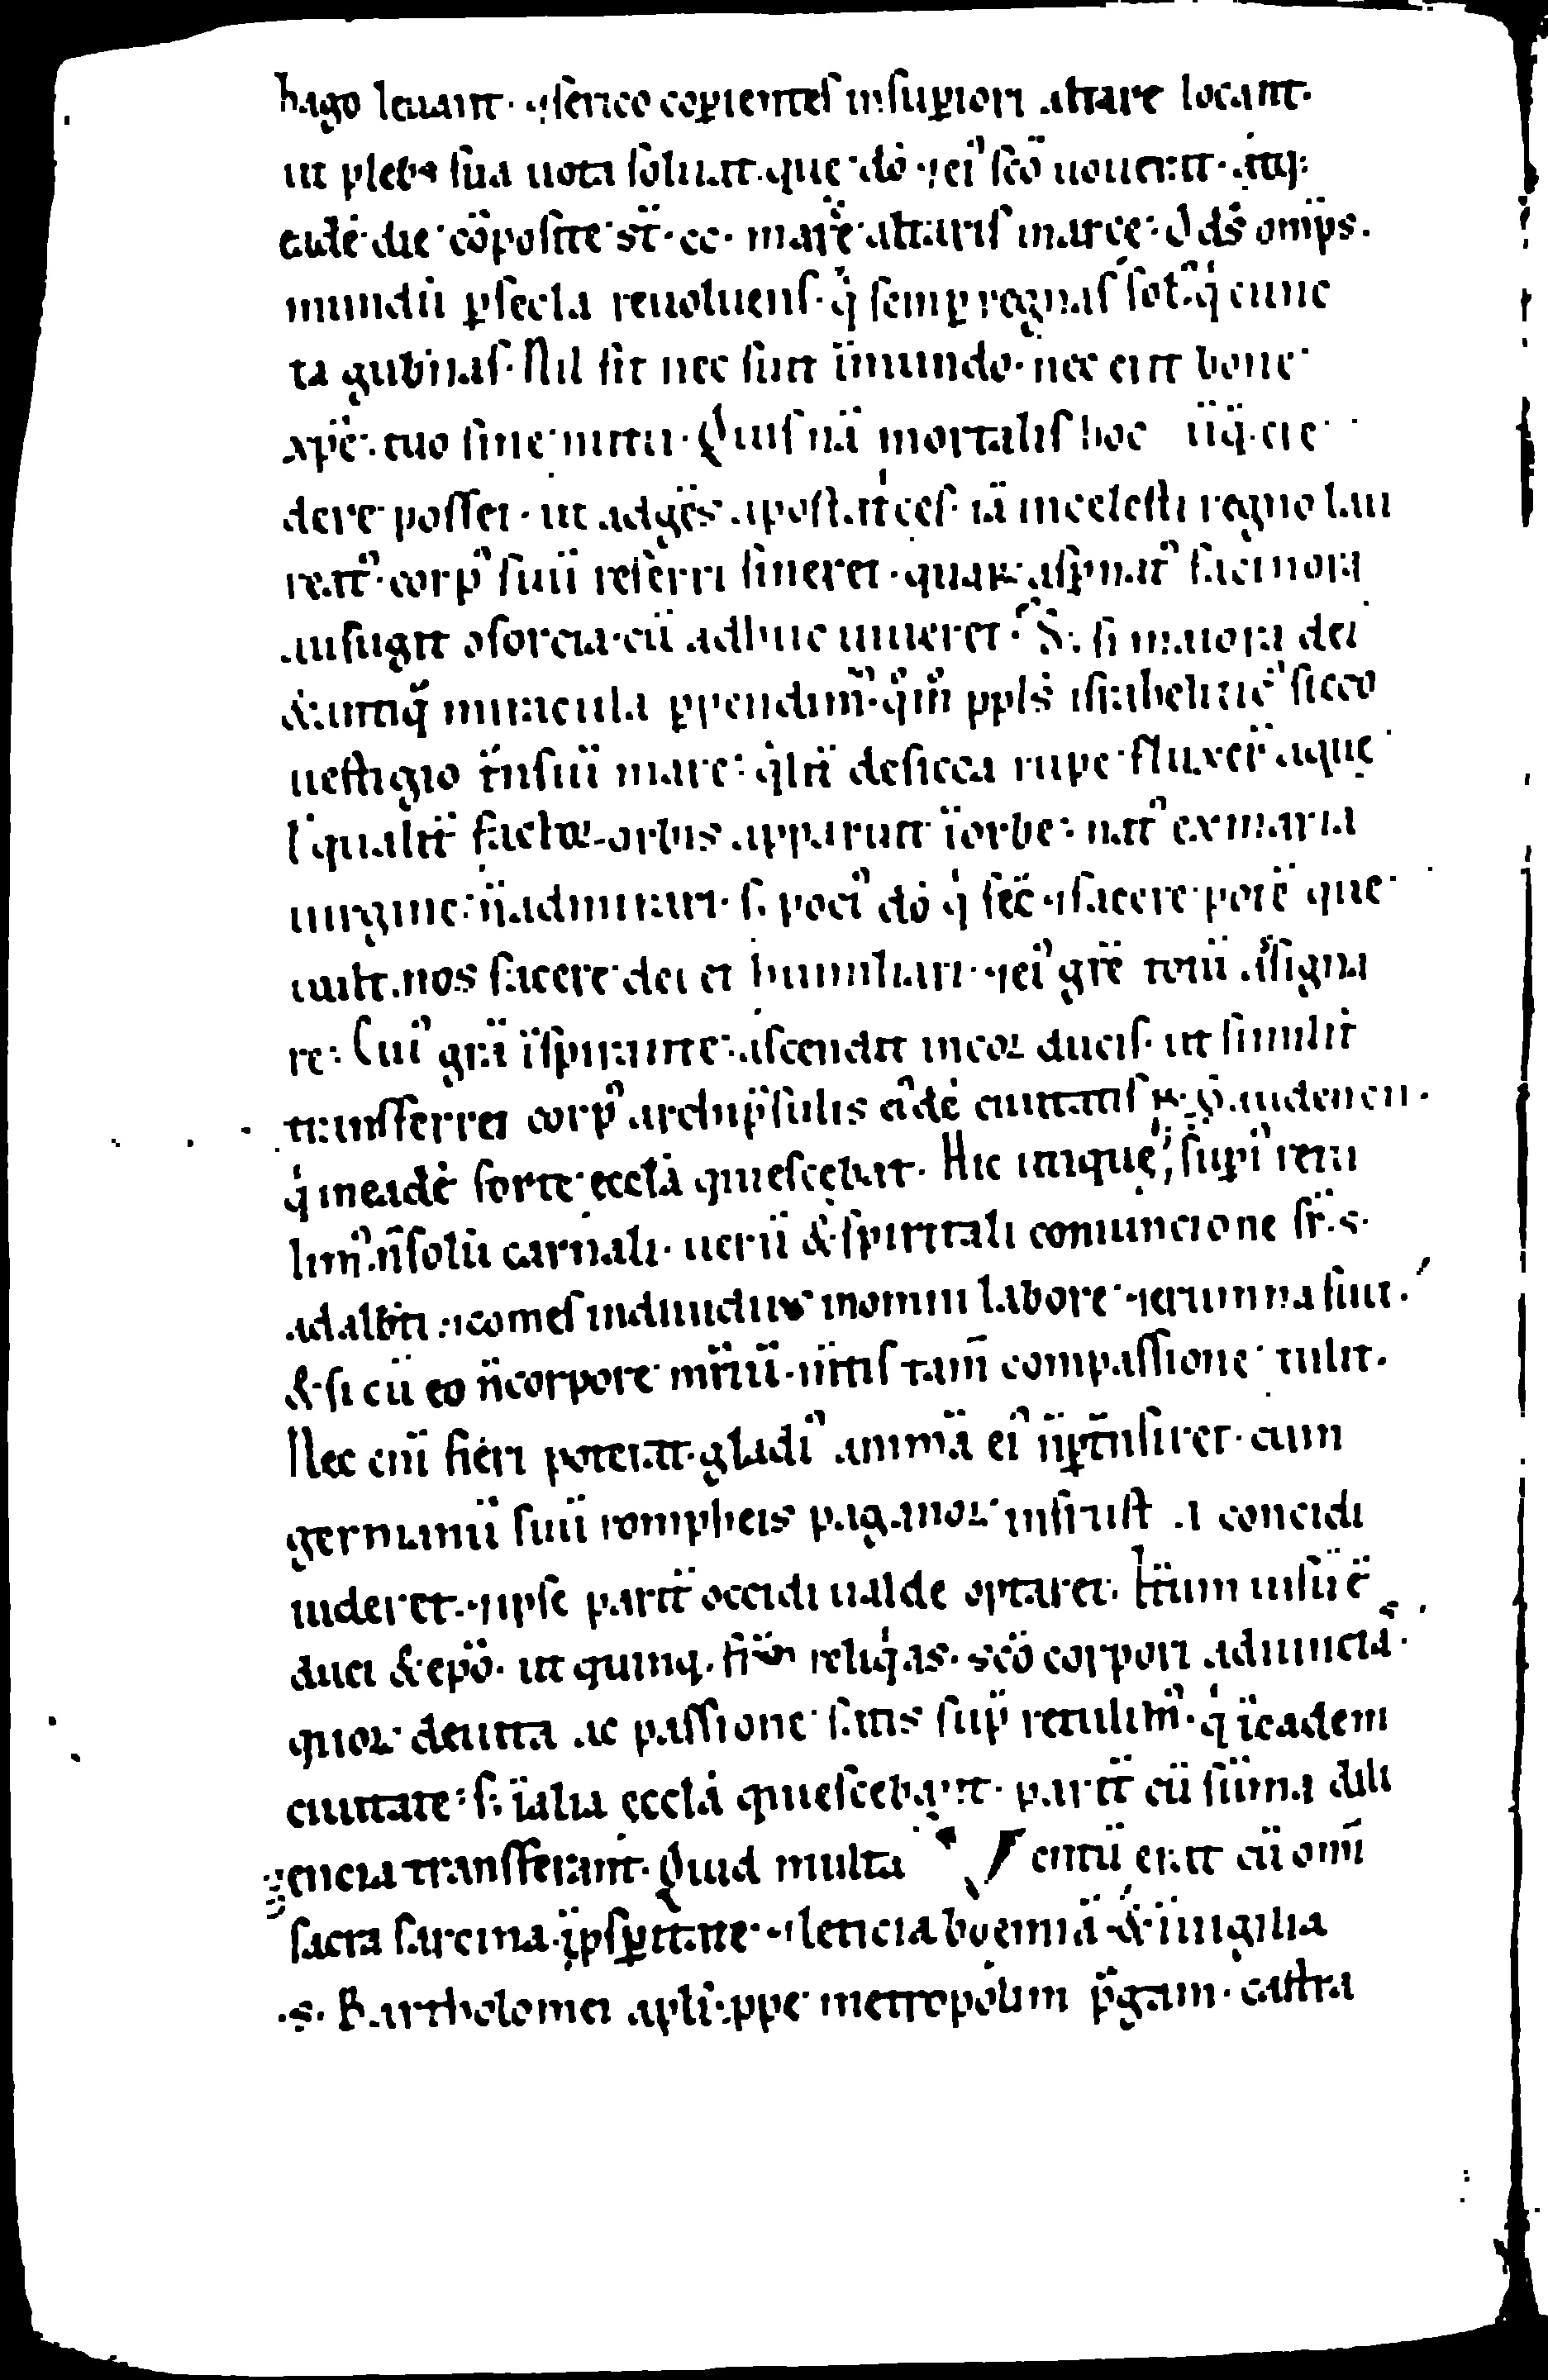 hago leuant· ⁊ serico coꝑientes insuꝑiori altare locant·
ut plebs sua uota soluat· que dō ⁊ ei᾿ scō uouerat· atq;
eadē die cōposite st̄· cc· marce altaris in arce: O ds̄ omp̄s·
mundū ꝑ secla reuoluens· qͥ semꝑ regnas sol᾿ qͥ cunc
ta gub̄nas· Nil sit nec fuit ī mundo· nec erit bone
xp̄e· tuo sine nutu· Quis nā mortalis hoc ūq̄· cre
dere posset· ut ad gēs apostatͥces· iā in celesti regno lau
reat᾿· corp᾿ suū referri sineret· quaꝝ aspnat᾿ facinora
aufugit osorcia· cū adhuc uiueret· S; si maiora dei
& antiq̄ miracula ꝑpendim᾿· qm̄ ppls̄ israheliticᵒ sicco
uestigio tͣnsiit mare: qͣlit̄ de sicca rupe fluxer̄ aque
l᾿ qualit̄ factor orbis apparuit ī orbe: nat᾿ ex maria
uirgine: n̄ admirari· s; poci᾿ dō qͥ fec̄ ⁊ facere potē que
uult· nos facere decet humiliari· ⁊ ei᾿ grē totū assigna
re: Cui᾿ grā īspirante: ascendit in cor ducis· ut similit̄
transferret corp᾿ archip̄sulis ei᾿dē ciuitatis ·s· Gaudencii·
qͥ in eadē forte eccl̄a quiescebat· Hic utique, ut superi᾿ retu
lim᾿· n̄ solū carnali· uerū & spiritali coniuncione fr̄· s·
adalb̄ti· ⁊ comes indiuiduus in omni labore ⁊ erumna fuit·
& si cū eo n̄ corpore mr̄iū· mētis tam̄ compassione tulit·
Nec eni᾿ fieri poterat· gladi᾿ animā ei᾿ n̄ ꝑtͣnsiret· cum
germanū suū rompheis paganoꝝ in frusta concidi
uideret· ⁊ ipse parit̄ occidi ualde optaret· Etiam uisū ē
duci & epō· ut quinq; frm̄ reliqͥas· scō corpori adiuncta·
quoꝝ de uita ac passione satis sup̄ retulim᾿· qͥ ī eadem
ciuitate: s; ī alia eccl̄a quiescebant· parit̄ cū sūma dili
gencia transferant· Quid multa Uentū erat cū omi᾿
sacra sarcina· ī ꝓsperitate· ⁊ leticia boemiā· & ī uigilia
·s· Bartholomei apl̄i· ppe metropolim p̄gam· castra